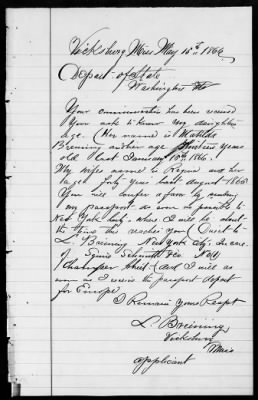 Vicksburg Miss May 15th 1866
Depart of State
Washington
Your communication has been received
You ask to know my daughter
age. (Her name is Matilda
Breining and her age thirteen years
old last January 10th 1866.
My wife name is Regina and her
age forty year last August 1865
You will confer a favor by sending
my passport as soon as possible to
New York City, where I will be about
the time this reaches you (Direct to
L. Breining New York City in care
of Squis Schmitt &Co No
Chamber Street (and I will as
soon as I receive the passport depart
for Europe
I Remain yours Respt
L. Breining
Vicksburg
Miss
applicant